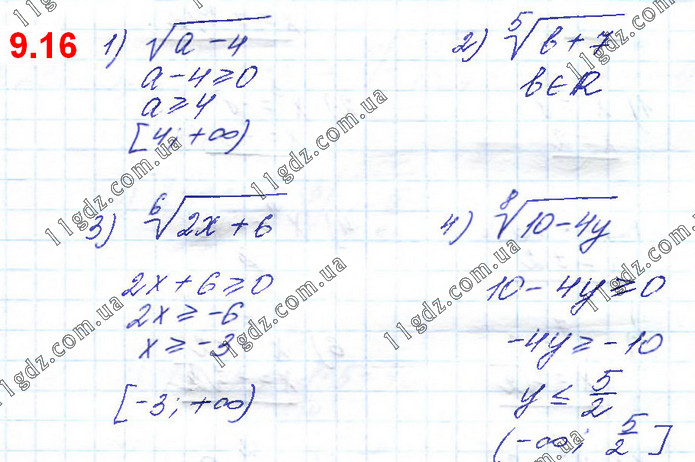 9.16
1) √(a - 4)
a - 4 ≥ 0
a ≥ 4
[4; +∞)
2) ⁵√(b + 7)
b ∈ R
3) ⁶√(2x + 6)
2x + 6 ≥ 0
2x ≥ -6
x ≥ -3
[-3; +∞)
4) ⁸√(10 - 4y)
10 - 4y ≥ 0
-4y ≥ -10
y ≤ 5/2
(-∞; 5/2]
11gdz.com.ua
11gdz.com.ua
11gdz.com.ua
11gdz.com.ua
11gdz.com.ua
11gdz.com.ua